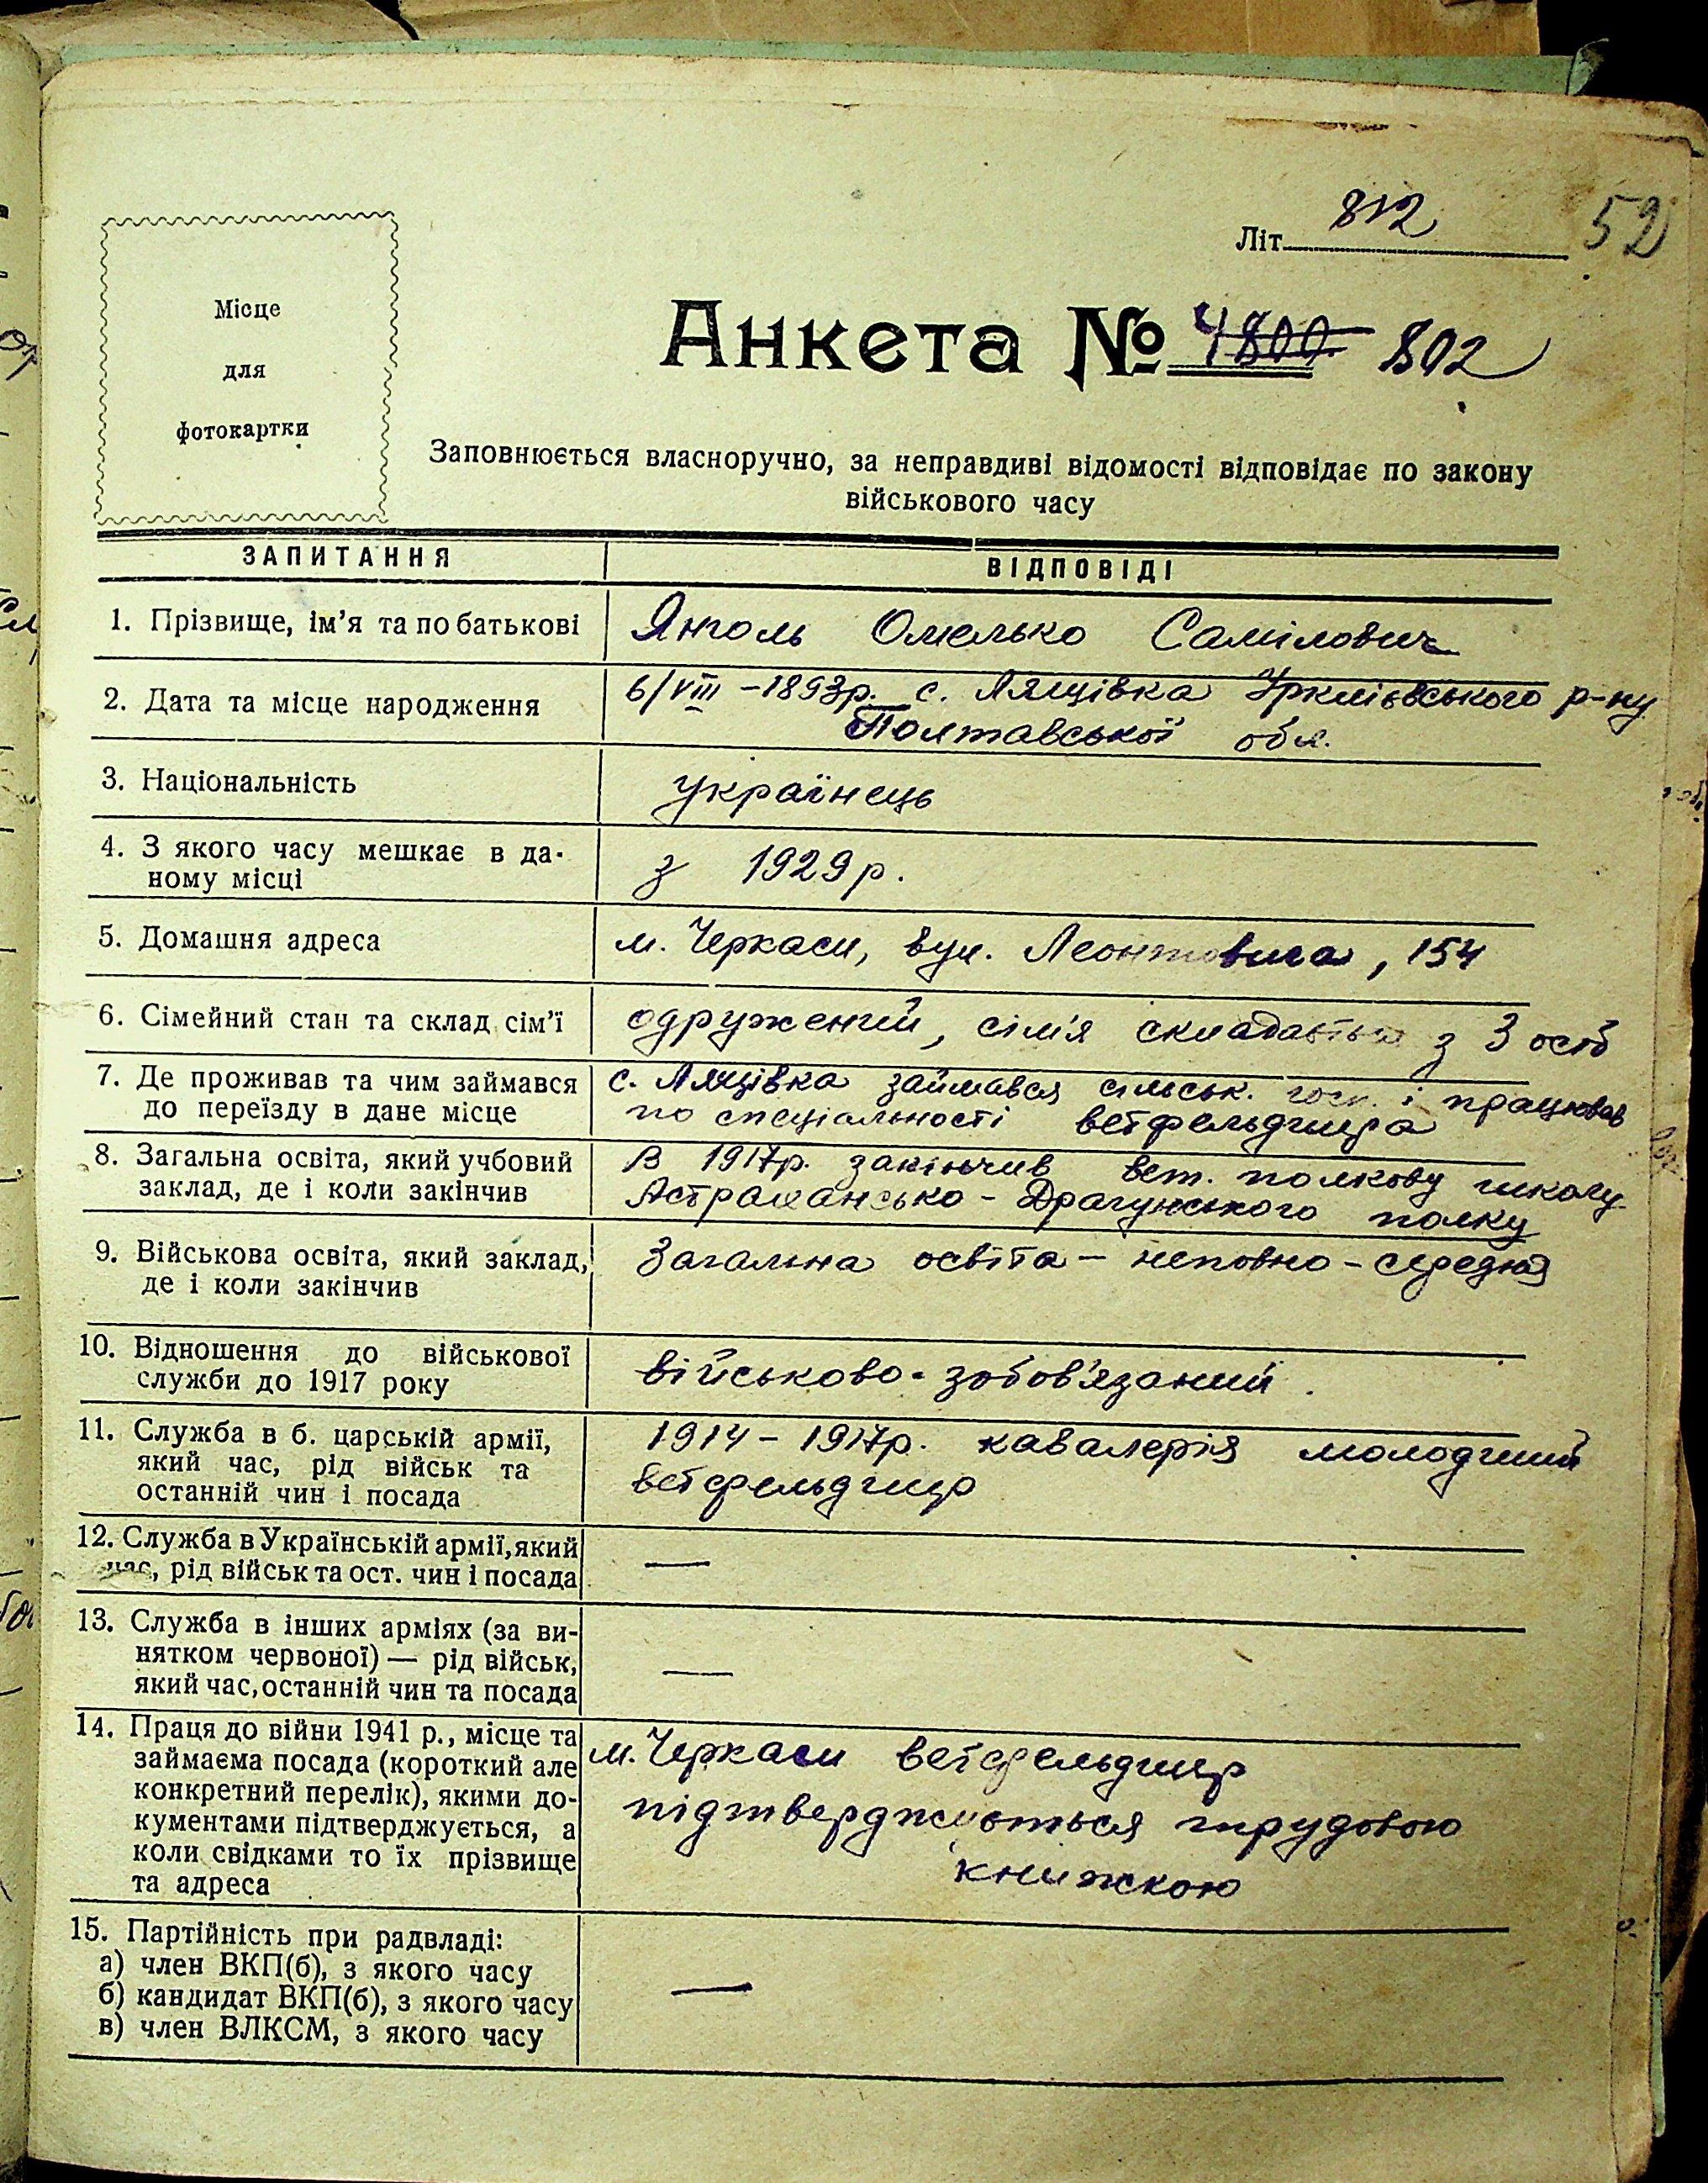 812
Літ. 52
Місце
для
фотокартки
Анкета № 4800 802
Заповнюється власноручно, за неправдиві відомості відповідає по закону
військового часу
ЗАПИТАННЯ ВІДПОВІДІ
1. Прізвище, ім'я та по батькові Янголь Омелько Самілович
2. Дата та місце народження 6/VIII – 1893р. с. Лящівка Іркліївського р-ну
Полтавської обл.
3. Національність українець
4. З якого часу мешкає в да-
ному місці з 1929 р.
5. Домашня адреса м. Черкаси, вул. Леонтовича, 154
6. Сімейний стан та склад сім'ї одружений, сім'я складається з 3 осіб
7. Де проживав та чим займався с. Лящівка займався сільськ. госп. і працював
до переїзду в дане місце по спеціальності ветфельдшера
8. Загальна освіта, який учбовий В 1917р. закінчив вет. полкову школу
заклад, де і коли закінчив Астрахансько-Драгунського полку
9. Військова освіта, який заклад, Загальна освіта – неповно-середня
де і коли закінчив
10. Відношення до військової
служби до 1917 року військово-зобов'язаний.
11. Служба в б. царській армії, 1914 – 1917р. кавалерія молодший
який час, рід військ та ветфельдшер
останній чин і посада
12. Служба в Українській армії, який
час, рід військ та ост. чин і посада —
13. Служба в інших арміях (за ви-
нятком червоної) — рід військ, —
який час, останній чин та посада
14. Праця до війни 1941 р., місце та м. Черкаси ветфельдшер
займаєма посада (короткий але
конкретний перелік), якими до- підтверджується трудовою
кументами підтверджується, а
коли свідками то їх прізвище книжкою
та адреса
15. Партійність при радвладі:
а) член ВКП(б), з якого часу
б) кандидат ВКП(б), з якого часу —
в) член ВЛКСМ, з якого часу